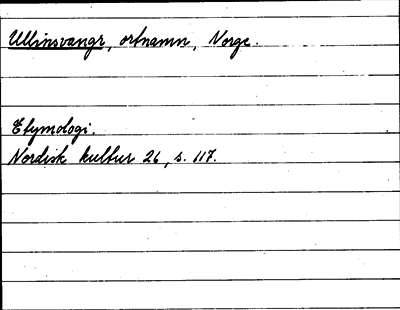 Ullinsvangr, ortnamn, Norge.
Etymologi.
Nordisk kultur 26, s. 117.